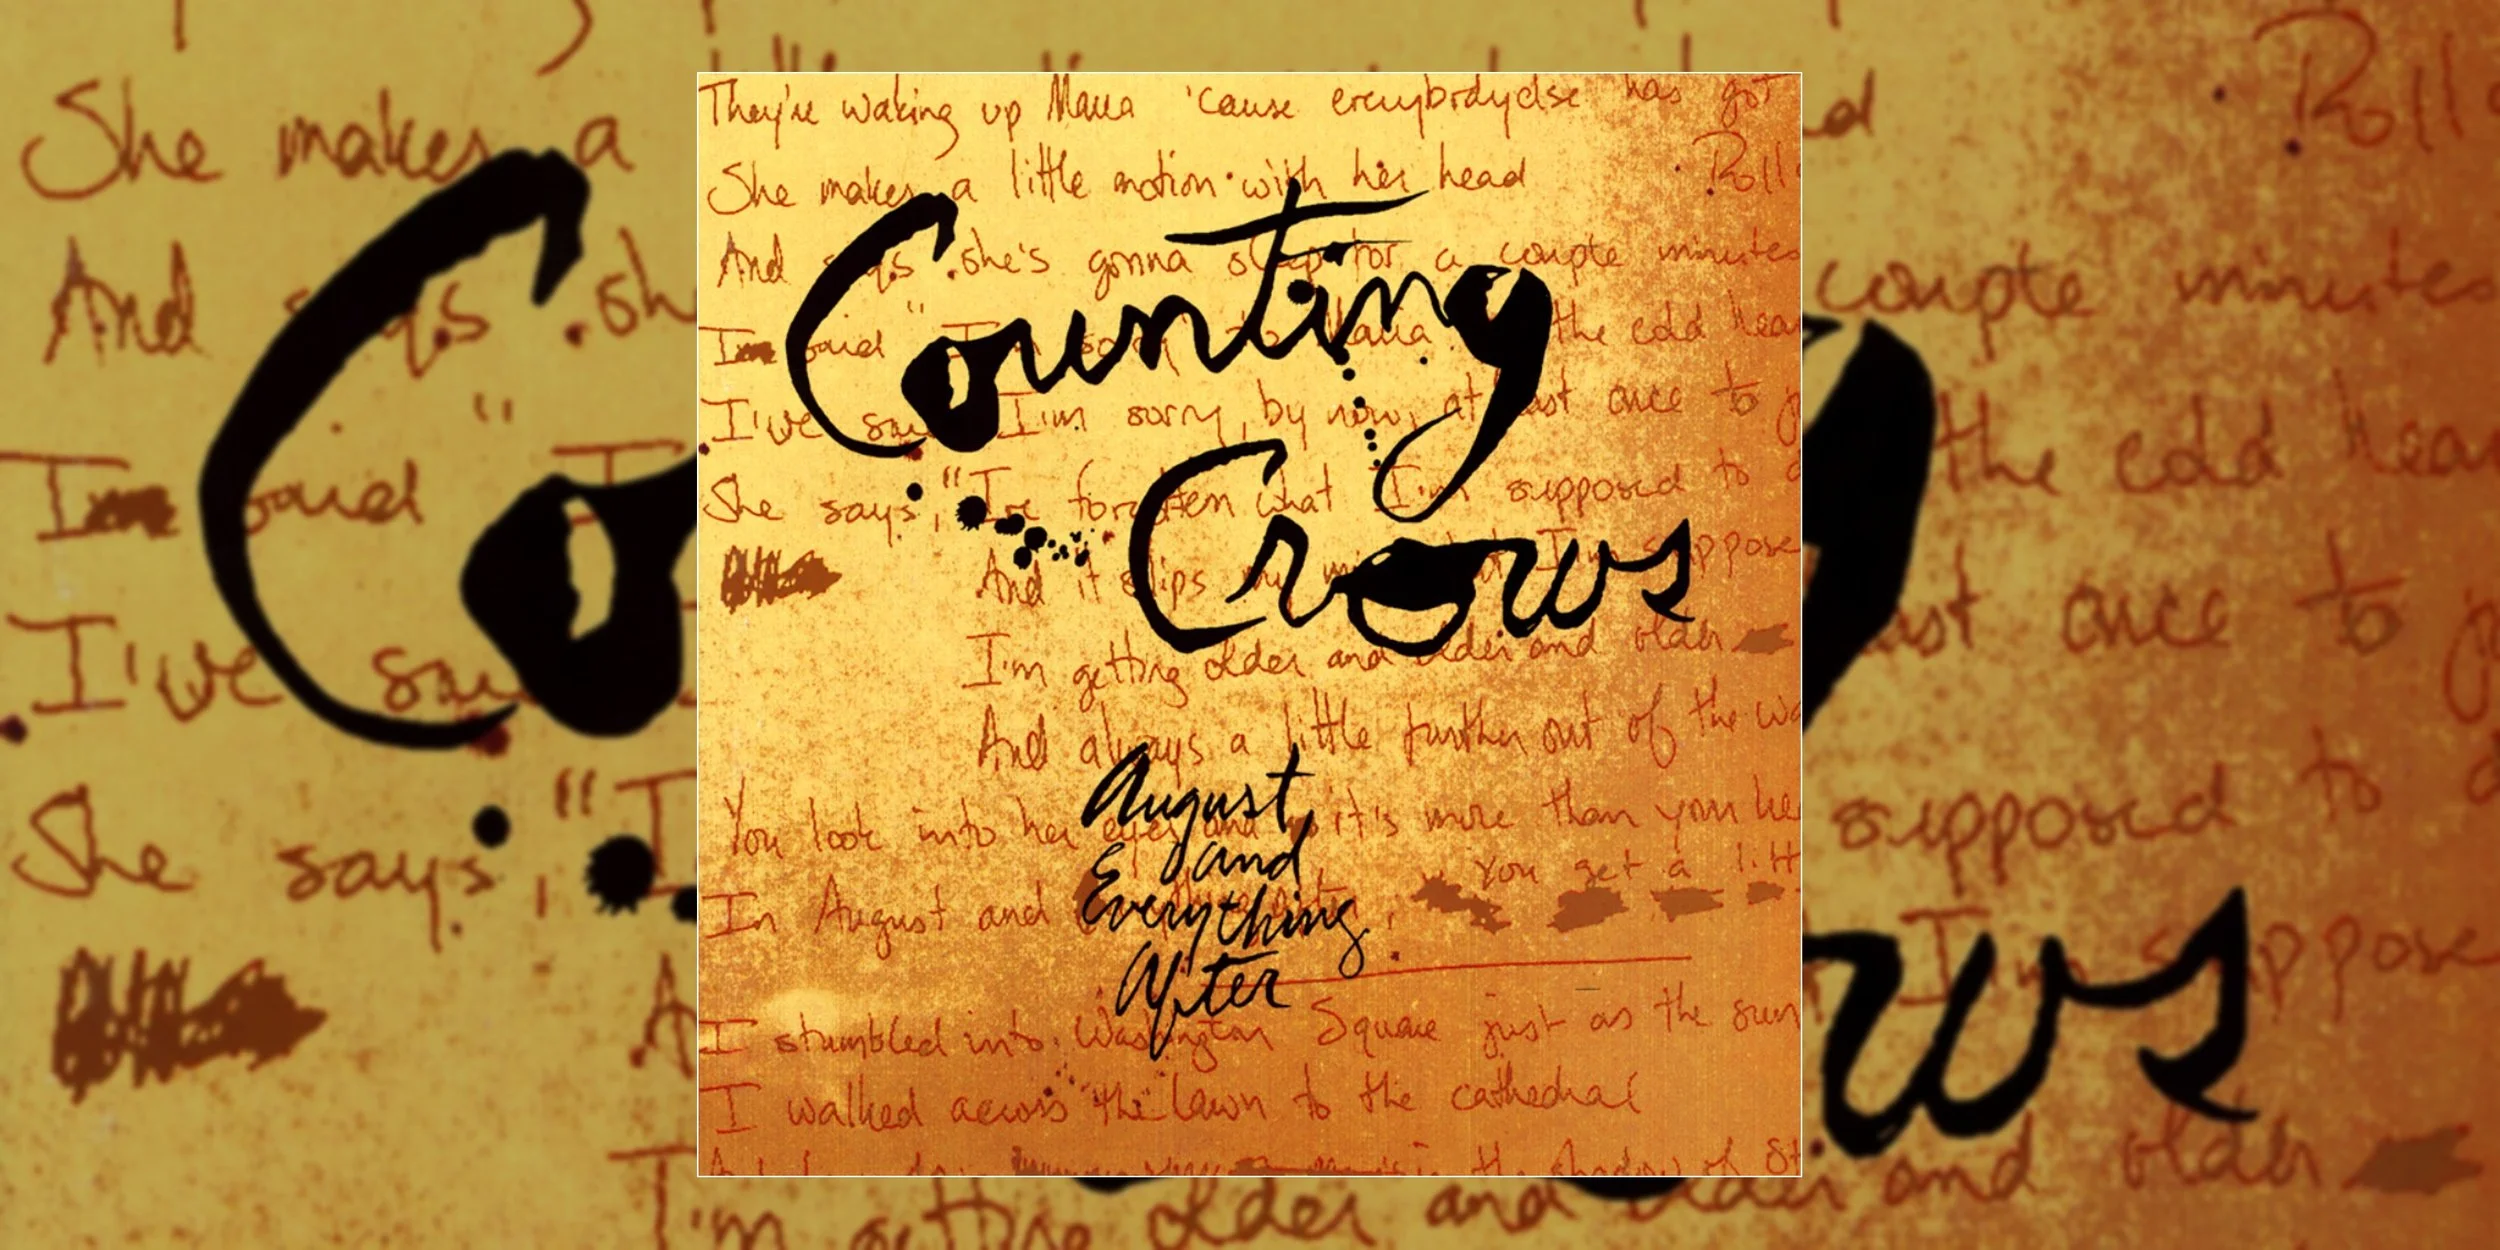 They're waking up Maria 'cause everybodyelse has got
She makes a little motion with her head
Rolls
And says she's gonna sleep for a couple minutes
I said "I'm sorry" to Maria the cold hear
I've said I'm sorry, by now, at least once to
She says, "I've forgotten what I'm supposed to
And it slips my mind what I'm suppose
I'm getting older and older and older
And always a little further out of the wa
You look into her eyes and it's more than your hea
You get a litt
In August and Everything After,
I stumbled into Washington Square just as the sun
I walked across the lawn to the cathedral
in the shadow of St
Counting
Crows
August
and
Everything
After